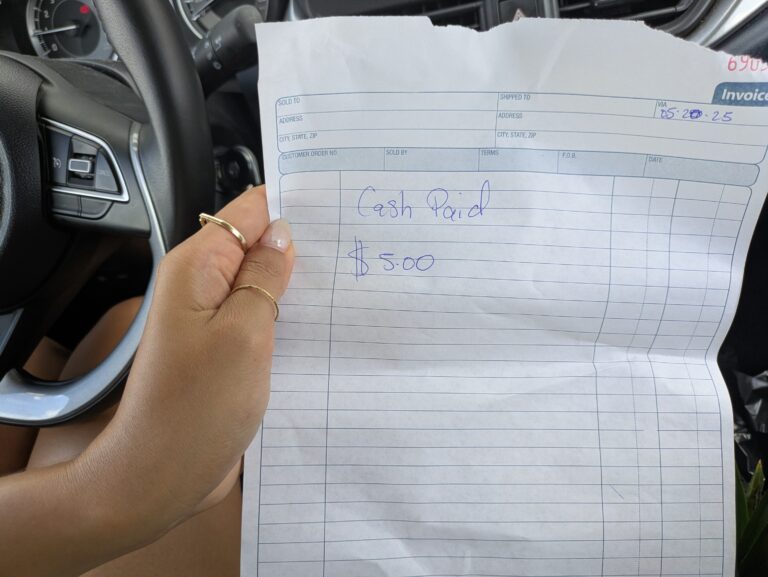 6903
Invoice
SOLD TO
SHIPPED TO
VIA
05-20-25
ADDRESS
ADDRESS
CITY, STATE, ZIP
CITY, STATE, ZIP
CUSTOMER ORDER NO. SOLD BY TERMS F.O.B. DATE
Cash Paid
$ 5.00